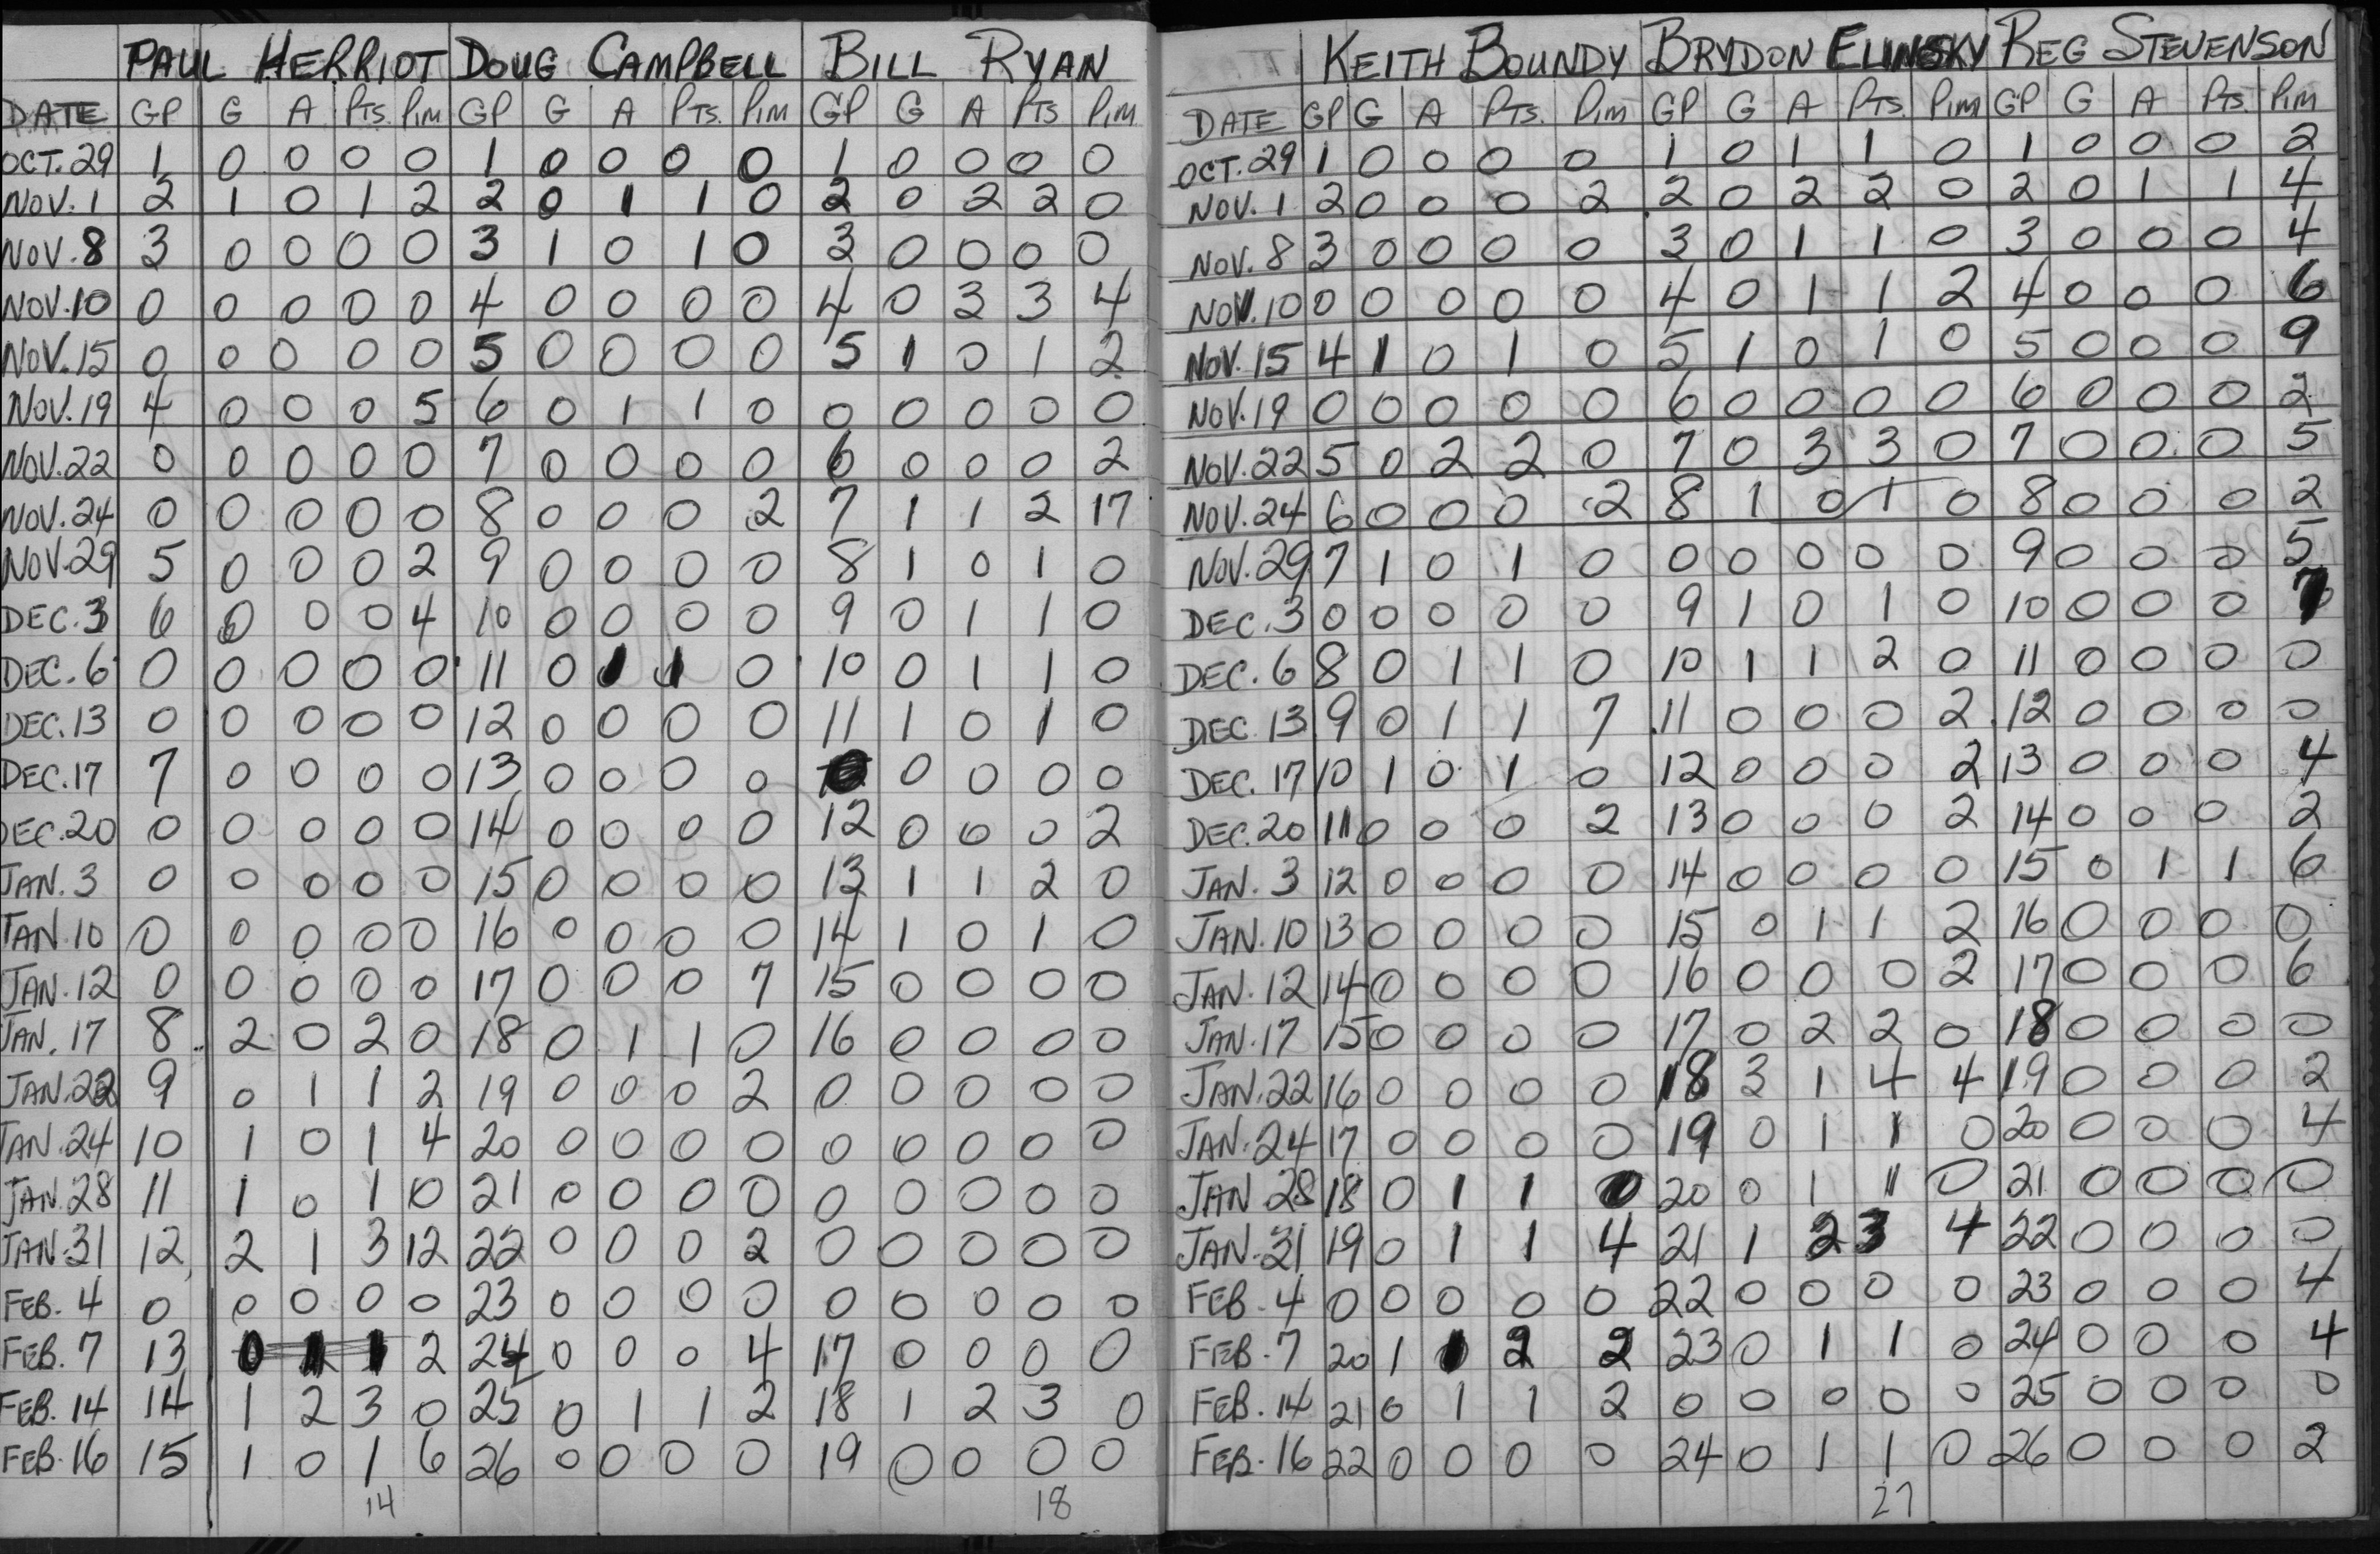 PAUL HERRIOT DOUG CAMPBELL BILL RYAN
DATE GP G A PTS. PIM GP G A PTS. PIM GP G A PTS PIM
OCT. 29 1 0 0 0 0 1 0 0 0 0 1 0 0 0 0
NOV. 1 2 1 0 1 2 2 0 1 1 0 2 0 2 2 0
NOV. 8 3 0 0 0 0 3 1 0 1 0 3 0 0 0 0
NOV. 10 0 0 0 0 0 4 0 0 0 0 4 0 3 3 4
NOV. 15 0 0 0 0 0 5 0 0 0 0 5 1 0 1 2
NOV. 19 4 0 0 0 5 6 0 1 1 0 0 0 0 0 0
NOV. 22 0 0 0 0 0 7 0 0 0 0 6 0 0 0 2
NOV. 24 0 0 0 0 0 8 0 0 0 2 7 1 1 2 17
NOV. 29 5 0 0 0 2 9 0 0 0 0 8 1 0 1 0
DEC. 3 6 0 0 0 4 10 0 0 0 0 9 0 1 1 0
DEC. 6 0 0 0 0 0 11 0 1 1 0 10 0 1 1 0
DEC. 13 0 0 0 0 0 12 0 0 0 0 11 1 0 1 0
DEC. 17 7 0 0 0 0 13 0 0 0 0 0 0 0 0
DEC. 20 0 0 0 0 0 14 0 0 0 0 12 0 0 0 2
JAN. 3 0 0 0 0 0 15 0 0 0 0 13 1 1 2 0
JAN. 10 0 0 0 0 0 16 0 0 0 0 14 1 0 1 0
JAN. 12 0 0 0 0 0 17 0 0 0 7 15 0 0 0 0
JAN. 17 8 2 0 2 0 18 0 1 1 0 16 0 0 0 0
JAN. 22 9 0 1 1 2 19 0 0 0 2 0 0 0 0 0
JAN. 24 10 1 0 1 4 20 0 0 0 0 0 0 0 0 0
JAN. 28 11 1 0 1 0 21 0 0 0 0 0 0 0 0 0
JAN. 31 12 2 1 3 12 22 0 0 0 2 0 0 0 0 0
FEB. 4 0 0 0 0 0 23 0 0 0 0 0 0 0 0 0
FEB. 7 13 0 1 1 2 24 0 0 0 4 17 0 0 0 0
FEB. 14 14 1 2 3 0 25 0 1 1 2 18 1 2 3 0
FEB. 16 15 1 0 1 6 26 0 0 0 0 19 0 0 0 0
14 18
KEITH BOUNDY BRYDON ELINSKY REG STEVENSON
DATE GP G A PTS. PIM GP G A PTS. PIM GP G A PTS. PIM
OCT. 29 1 0 0 0 0 1 0 1 1 0 1 0 0 0 2
NOV. 1 2 0 0 0 2 2 0 2 2 0 2 0 1 1 4
NOV. 8 3 0 0 0 0 3 0 1 1 0 3 0 0 0 4
NOV. 10 0 0 0 0 0 4 0 1 1 2 4 0 0 0 6
NOV. 15 4 1 0 1 0 5 1 0 1 0 5 0 0 0 9
NOV. 19 0 0 0 0 0 6 0 0 0 0 6 0 0 0 2
NOV. 22 5 0 2 2 0 7 0 3 3 0 7 0 0 0 5
NOV. 24 6 0 0 0 2 8 1 0 1 0 8 0 0 0 2
NOV. 29 7 1 0 1 0 0 0 0 0 0 9 0 0 0 5
DEC. 3 0 0 0 0 0 9 1 0 1 0 10 0 0 0 7
DEC. 6 8 0 1 1 0 10 1 1 2 0 11 0 0 0 0
DEC. 13 9 0 1 1 7 11 0 0 0 2 12 0 0 0 0
DEC. 17 10 1 0 1 0 12 0 0 0 2 13 0 0 0 4
DEC. 20 11 0 0 0 2 13 0 0 0 2 14 0 0 0 2
JAN. 3 12 0 0 0 0 14 0 0 0 0 15 0 1 1 6
JAN. 10 13 0 0 0 0 15 0 1 1 2 16 0 0 0 0
JAN. 12 14 0 0 0 0 16 0 0 0 2 17 0 0 0 6
JAN. 17 15 0 0 0 0 17 0 2 2 0 18 0 0 0 0
JAN. 22 16 0 0 0 0 18 3 1 4 4 19 0 0 0 2
JAN. 24 17 0 0 0 0 19 0 1 1 0 20 0 0 0 4
JAN. 28 18 0 1 1 0 20 0 1 1 0 21 0 0 0 0
JAN. 31 19 0 1 1 4 21 1 2 3 4 22 0 0 0 0
FEB. 4 0 0 0 0 0 22 0 0 0 0 23 0 0 0 4
FEB. 7 20 1 1 2 2 23 0 1 1 0 24 0 0 0 4
FEB. 14 21 0 1 1 2 0 0 0 0 0 25 0 0 0 0
FEB. 16 22 0 0 0 0 24 0 1 1 0 26 0 0 0 2
27